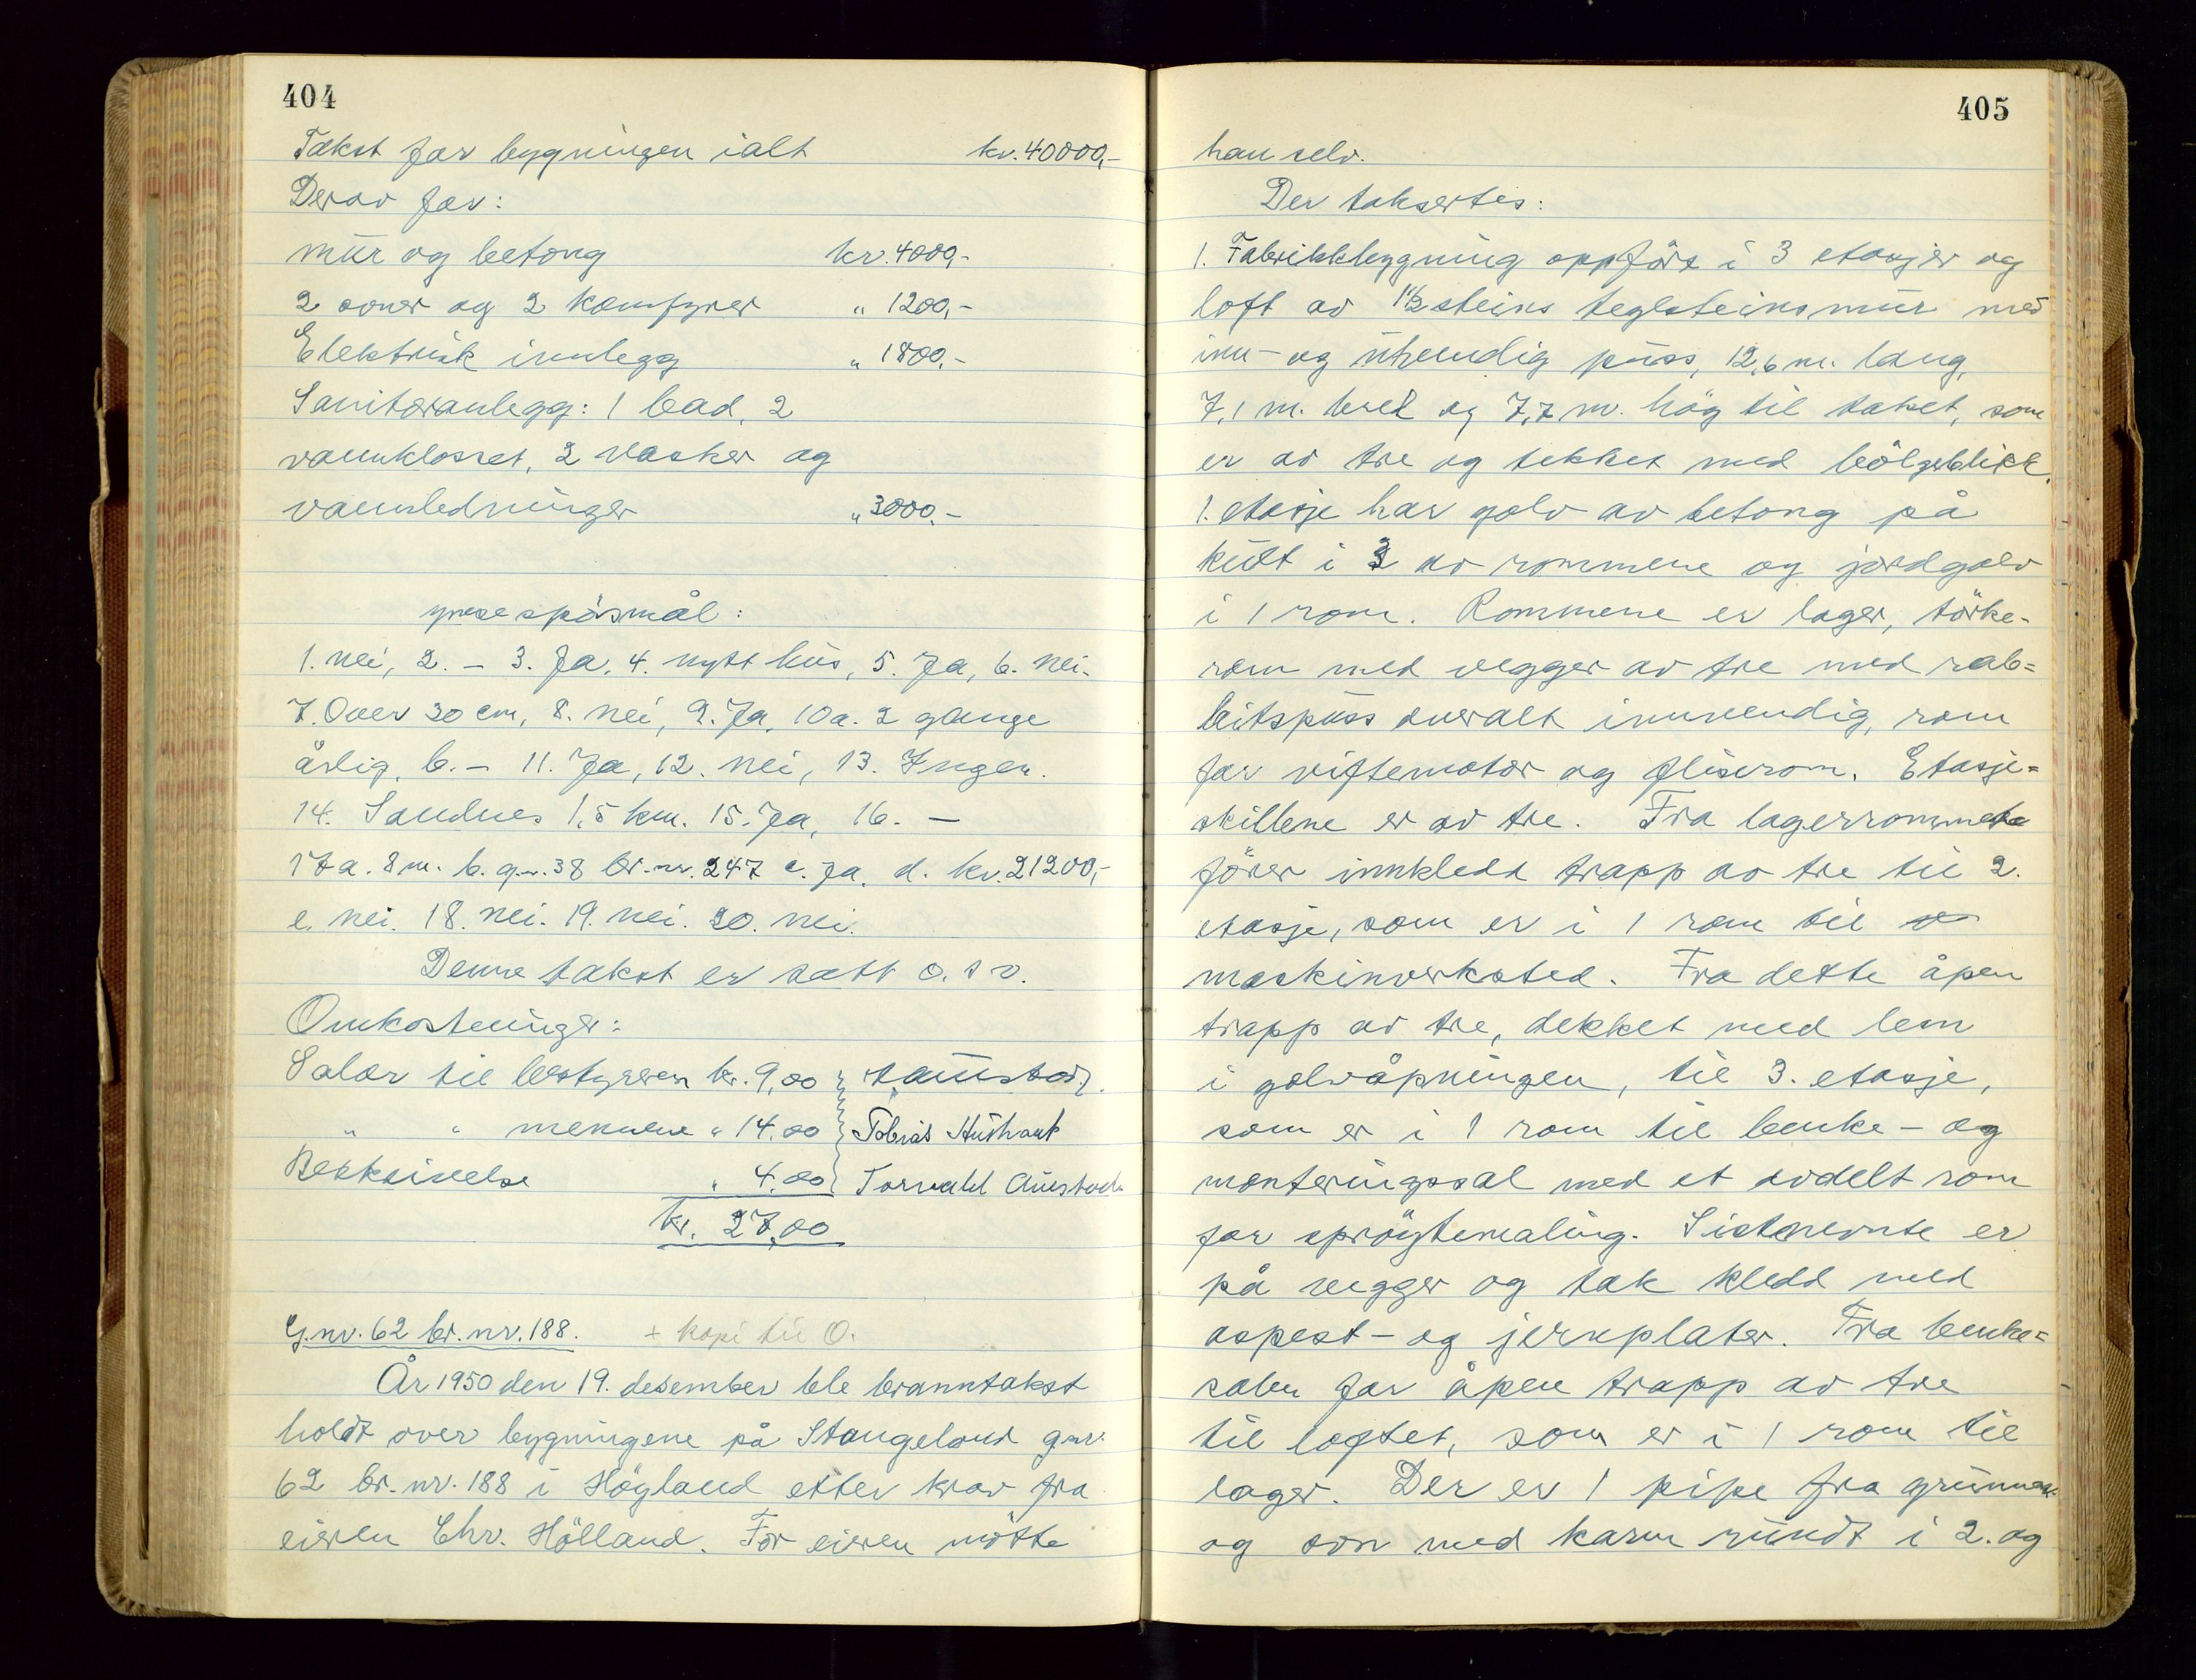 404
Takst for bygningen ialt kr. 40000,-
Derav for:
mur og betong kr. 4000,-
2 ovner og 2 komfyrer " 1200,-
Elektrisk innlegg " 1800,-
Sanitæranlegg: 1 bad, 2
vannklosset, 2 vasker og
vannledninger " 3000,-
spørsmål:
1. nei, 2. – 3. Ja, 4. nytt hus, 5. Ja, 6. Nei.
7. Over 30 cm, 8. nei, 9. Ja, 10a. 2 gange
årlig, b. – 11. Ja, 12. nei, 13. Ingen.
14. Sandnes 1,5 km. 15. Ja, 16. –
17 a. 8 m. b. g.nr. 38 br.nr. 247 c. Ja. d. kr. 21200,-
e. nei. 18. nei. 19. nei. 20. nei.
Denne takst er satt o. s v.
Omkostninger:
Salær til bestyreren kr. 9,00
" " mennene " 14.00 Tobias Husbaut
Beskrivelse " 4.00 Torvald Austad
kr. 27,00
G.nr. 62 br.nr. 188. + kopi til O.
År 1950 den 19. desember ble branntakst
holdt over bygningene på Stangeland gnr.
62 br.nr. 188 i Höyland etter krav fra
eieren Chr. Hölland. For eieren mötte
405
han selv.
Der taksertes:
1. Fabrikkbygning oppfört i 3 etasjer og
loft av 1½ steins teglsteinsmur med
inn- og utvendig puss, 12,6 m. lang,
7,1 m. bred og 7,7 m. hög til taket, som
er av tre og tekket med bölgeblikk.
1. etasje har golv av betong på
kult i 3 av rommene og jordgolv
i 1 rom. Rommene er lager, törke-
rom med vegger av tre med rab=
bitspuss overalt innvendig, rom
for viftemotor og fliserom. Etasje=
skillene er av tre. Fra lagerrommet
förer innkledd trapp av tre til 2.
etasje, som er i 1 rom til
maskinverksted. Fra dette åpen
trapp av tre, dekket med lem
i golvåpningen, til 3. etasje,
som er i 1 rom til benke- og
monteringssal med et avdelt rom
for spröytemaling. Sistnevnte er
på vegger og tak kledd med
aspest- og jernplater. Fra benke=
salen før åpen trapp av tre
til loftet, som er i 1 rom til
lager. Der er 1 pipe fra grunnen
og ovn med karm rundt i 2. og